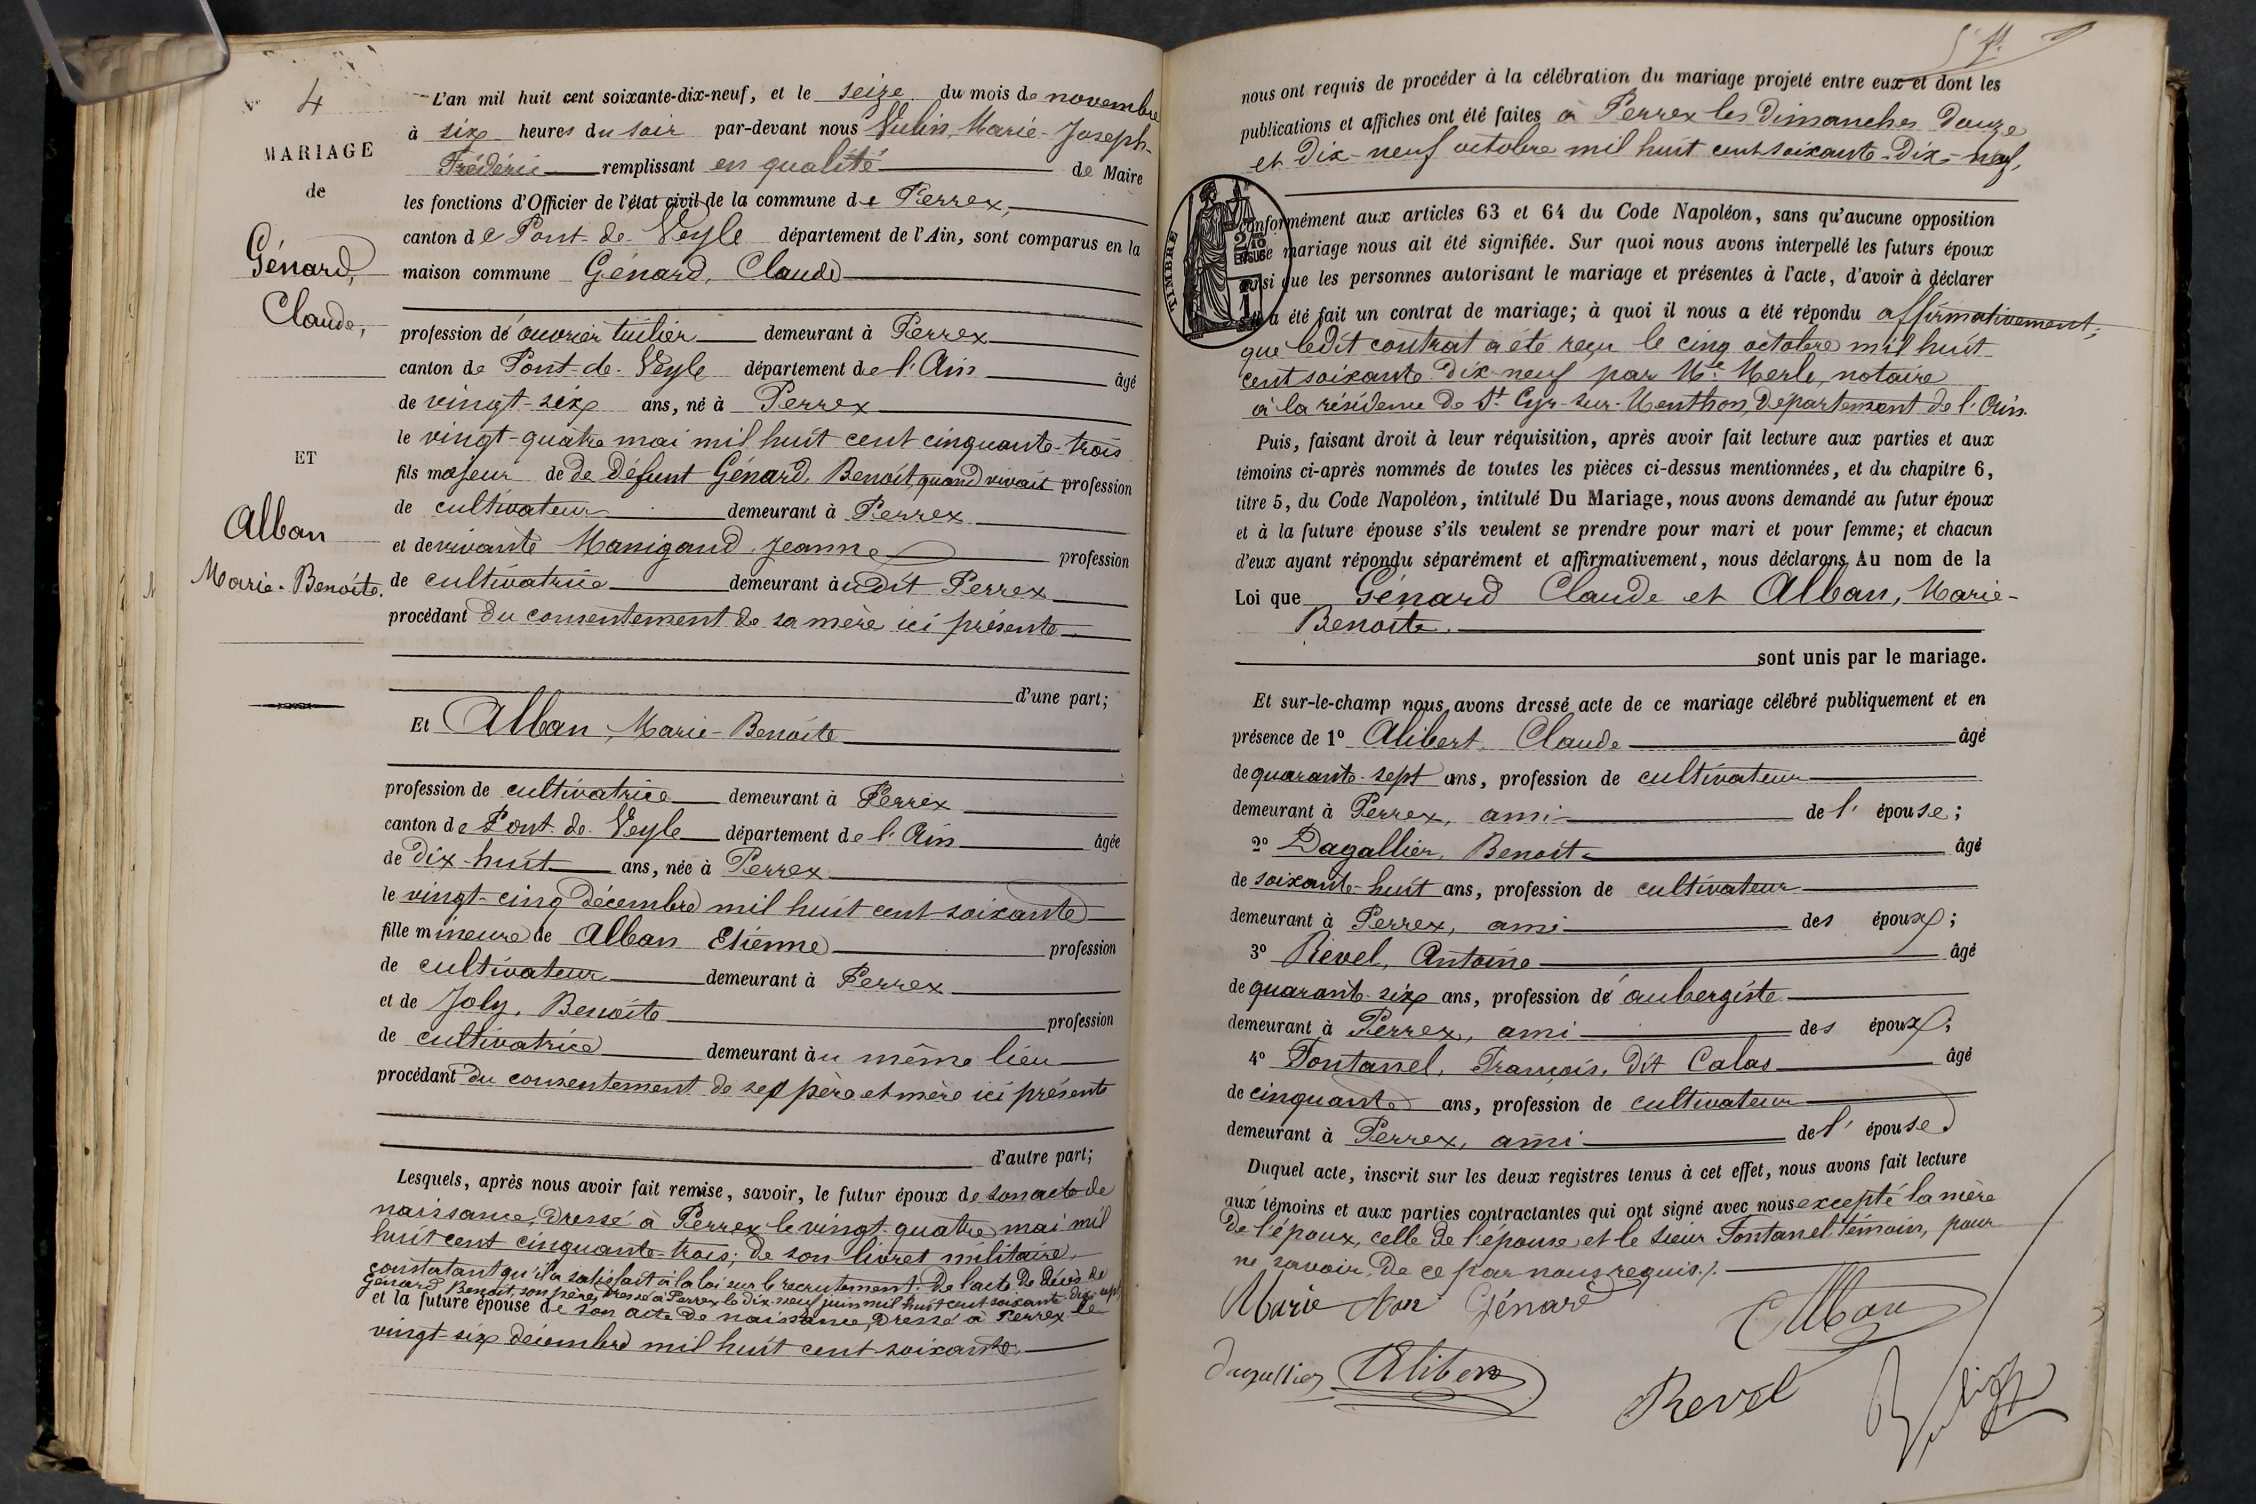 N° 4
MARIAGE
de
Génard,
Claude,
ET
Alban
Marie-Benoîte.
L'an mil huit cent soixante-dix-neuf, et le seize du mois de novembre
à six heures du soir par-devant nous Vulin, Marie-Joseph-
Frédéric remplissant en qualité de Maire
les fonctions d'Officier de l'état civil de la commune de Perrex,
canton de Pont-de-Veyle département de l'Ain, sont comparus en la
maison commune Génard, Claude
profession d'ouvrier tuilier demeurant à Perrex
canton de Pont-de-Veyle département de l'Ain âgé
de vingt-six ans, né à Perrex
le vingt-quatre mai mil huit cent cinquante-trois
fils majeur de de défunt Génard, Benoît, quand vivait profession
de cultivateur demeurant à Perrex
et de vivante Manigand Jeanne profession
de cultivatrice demeurant au dit Perrex
procédant du consentement de sa mère ici présente
d'une part;
Et Alban, Marie-Benoîte
profession de cultivatrice demeurant à Perrex
canton de Pont-de-Veyle département de l'Ain âgée
de dix-huit ans, née à Perrex
le vingt-cinq décembre mil huit cent soixante
fille mineure de Alban Etienne profession
de cultivateur demeurant à Perrex
et de Joly, Benoîte profession
de cultivatrice demeurant au même lieu
procédant du consentement de ses père et mère ici présents
d'autre part;
Lesquels, après nous avoir fait remise, savoir, le futur époux de son acte de
naissance, dressé à Perrex le vingt-quatre mai mil
huit cent cinquante-trois; de son livret militaire,
constatant qu'il a satisfait à la loi sur le recrutement. De l'acte de décès de
Génard Benoît, son père, dressé à Perrex le dix-neuf juin mil huit cent soixante-dix-sept
et la future épouse de son acte de naissance, dressé à Perrex le
vingt-six décembre mil huit cent soixante.
nous ont requis de procéder à la célébration du mariage projeté entre eux et dont les
publications et affiches ont été faites à Perrex les dimanches douze
et dix-neuf octobre mil huit cent soixante-dix-neuf,
TIMBRE
conformément aux articles 63 et 64 du Code Napoléon, sans qu'aucune opposition
mariage nous ait été signifiée. Sur quoi nous avons interpellé les futurs époux
ainsi que les personnes autorisant le mariage et présentes à l'acte, d'avoir à déclarer
a été fait un contrat de mariage; à quoi il nous a été répondu affirmativement;
que ledit contrat a été reçu le cinq octobre mil huit
cent soixante-dix-neuf par Me Merle, notaire
à la résidence de St Cyr-sur-Menthon, département de l'Ain.
Puis, faisant droit à leur réquisition, après avoir fait lecture aux parties et aux
témoins ci-après nommés de toutes les pièces ci-dessus mentionnées, et du chapitre 6,
titre 5, du Code Napoléon, intitulé Du Mariage, nous avons demandé au futur époux
et à la future épouse s'ils veulent se prendre pour mari et pour femme; et chacun
d'eux ayant répondu séparément et affirmativement, nous déclarons Au nom de la
Loi que Génard Claude et Alban, Marie-
Benoîte.
sont unis par le mariage.
Et sur-le-champ nous avons dressé acte de ce mariage célébré publiquement et en
présence de 1° Alibert, Claude âgé
de quarante-sept ans, profession de cultivateur
demeurant à Perrex, ami de l'épouse;
2° Dagallier, Benoît âgé
de soixante-huit ans, profession de cultivateur
demeurant à Perrex, ami des époux;
3° Revel, Antoine âgé
de quarante-six ans, profession d'aubergiste
demeurant à Perrex, ami des époux;
4° Fontanel, François, dit Calas âgé
de cinquante ans, profession de cultivateur
demeurant à Perrex, ami de l'épouse
Duquel acte, inscrit sur les deux registres tenus à cet effet, nous avons fait lecture
aux témoins et aux parties contractantes qui ont signé avec nous excepté la mère
de l'époux, celle de l'épouse et le sieur Fontanel témoin, pour
ne savoir, de ce par nous requis./.
Marie Génard Alban
Dagallier Alibert
Revel